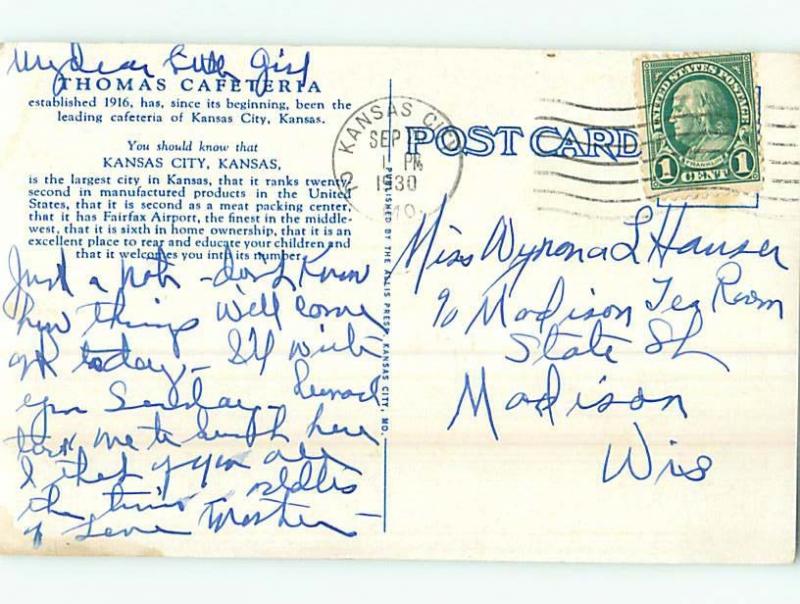 My dear Girl
THOMAS CAFETERIA
established 1916, has, since its beginning, been the
leading cafeteria of Kansas City, Kansas.
You should know that
KANSAS CITY, KANSAS,
is the largest city in Kansas, that it ranks twenty-
second in manufactured products in the United
States, that it is second as a meat packing center,
that it has Fairfax Airport, the finest in the middle-
west, that it is sixth in home ownership, that it is an
excellent place to rear and educate your children and
that it welcomes you into its number.
Just a note - don't know
how things will come
out today - I'll write
you Sunday -
took me to lunch here
I thot of you all
the time
of Love Mother -
PUBLISHED BY THE ALLIS PRESS, KANSAS CITY, MO.
KANSAS CITY
SEP
1 PM
1930
MO.
POST CARD
UNITED STATES POSTAGE
FRANKLIN
1 CENT 1
Miss Wynona L Hauser
% Madison Tea Room
State St
Madison
Wis